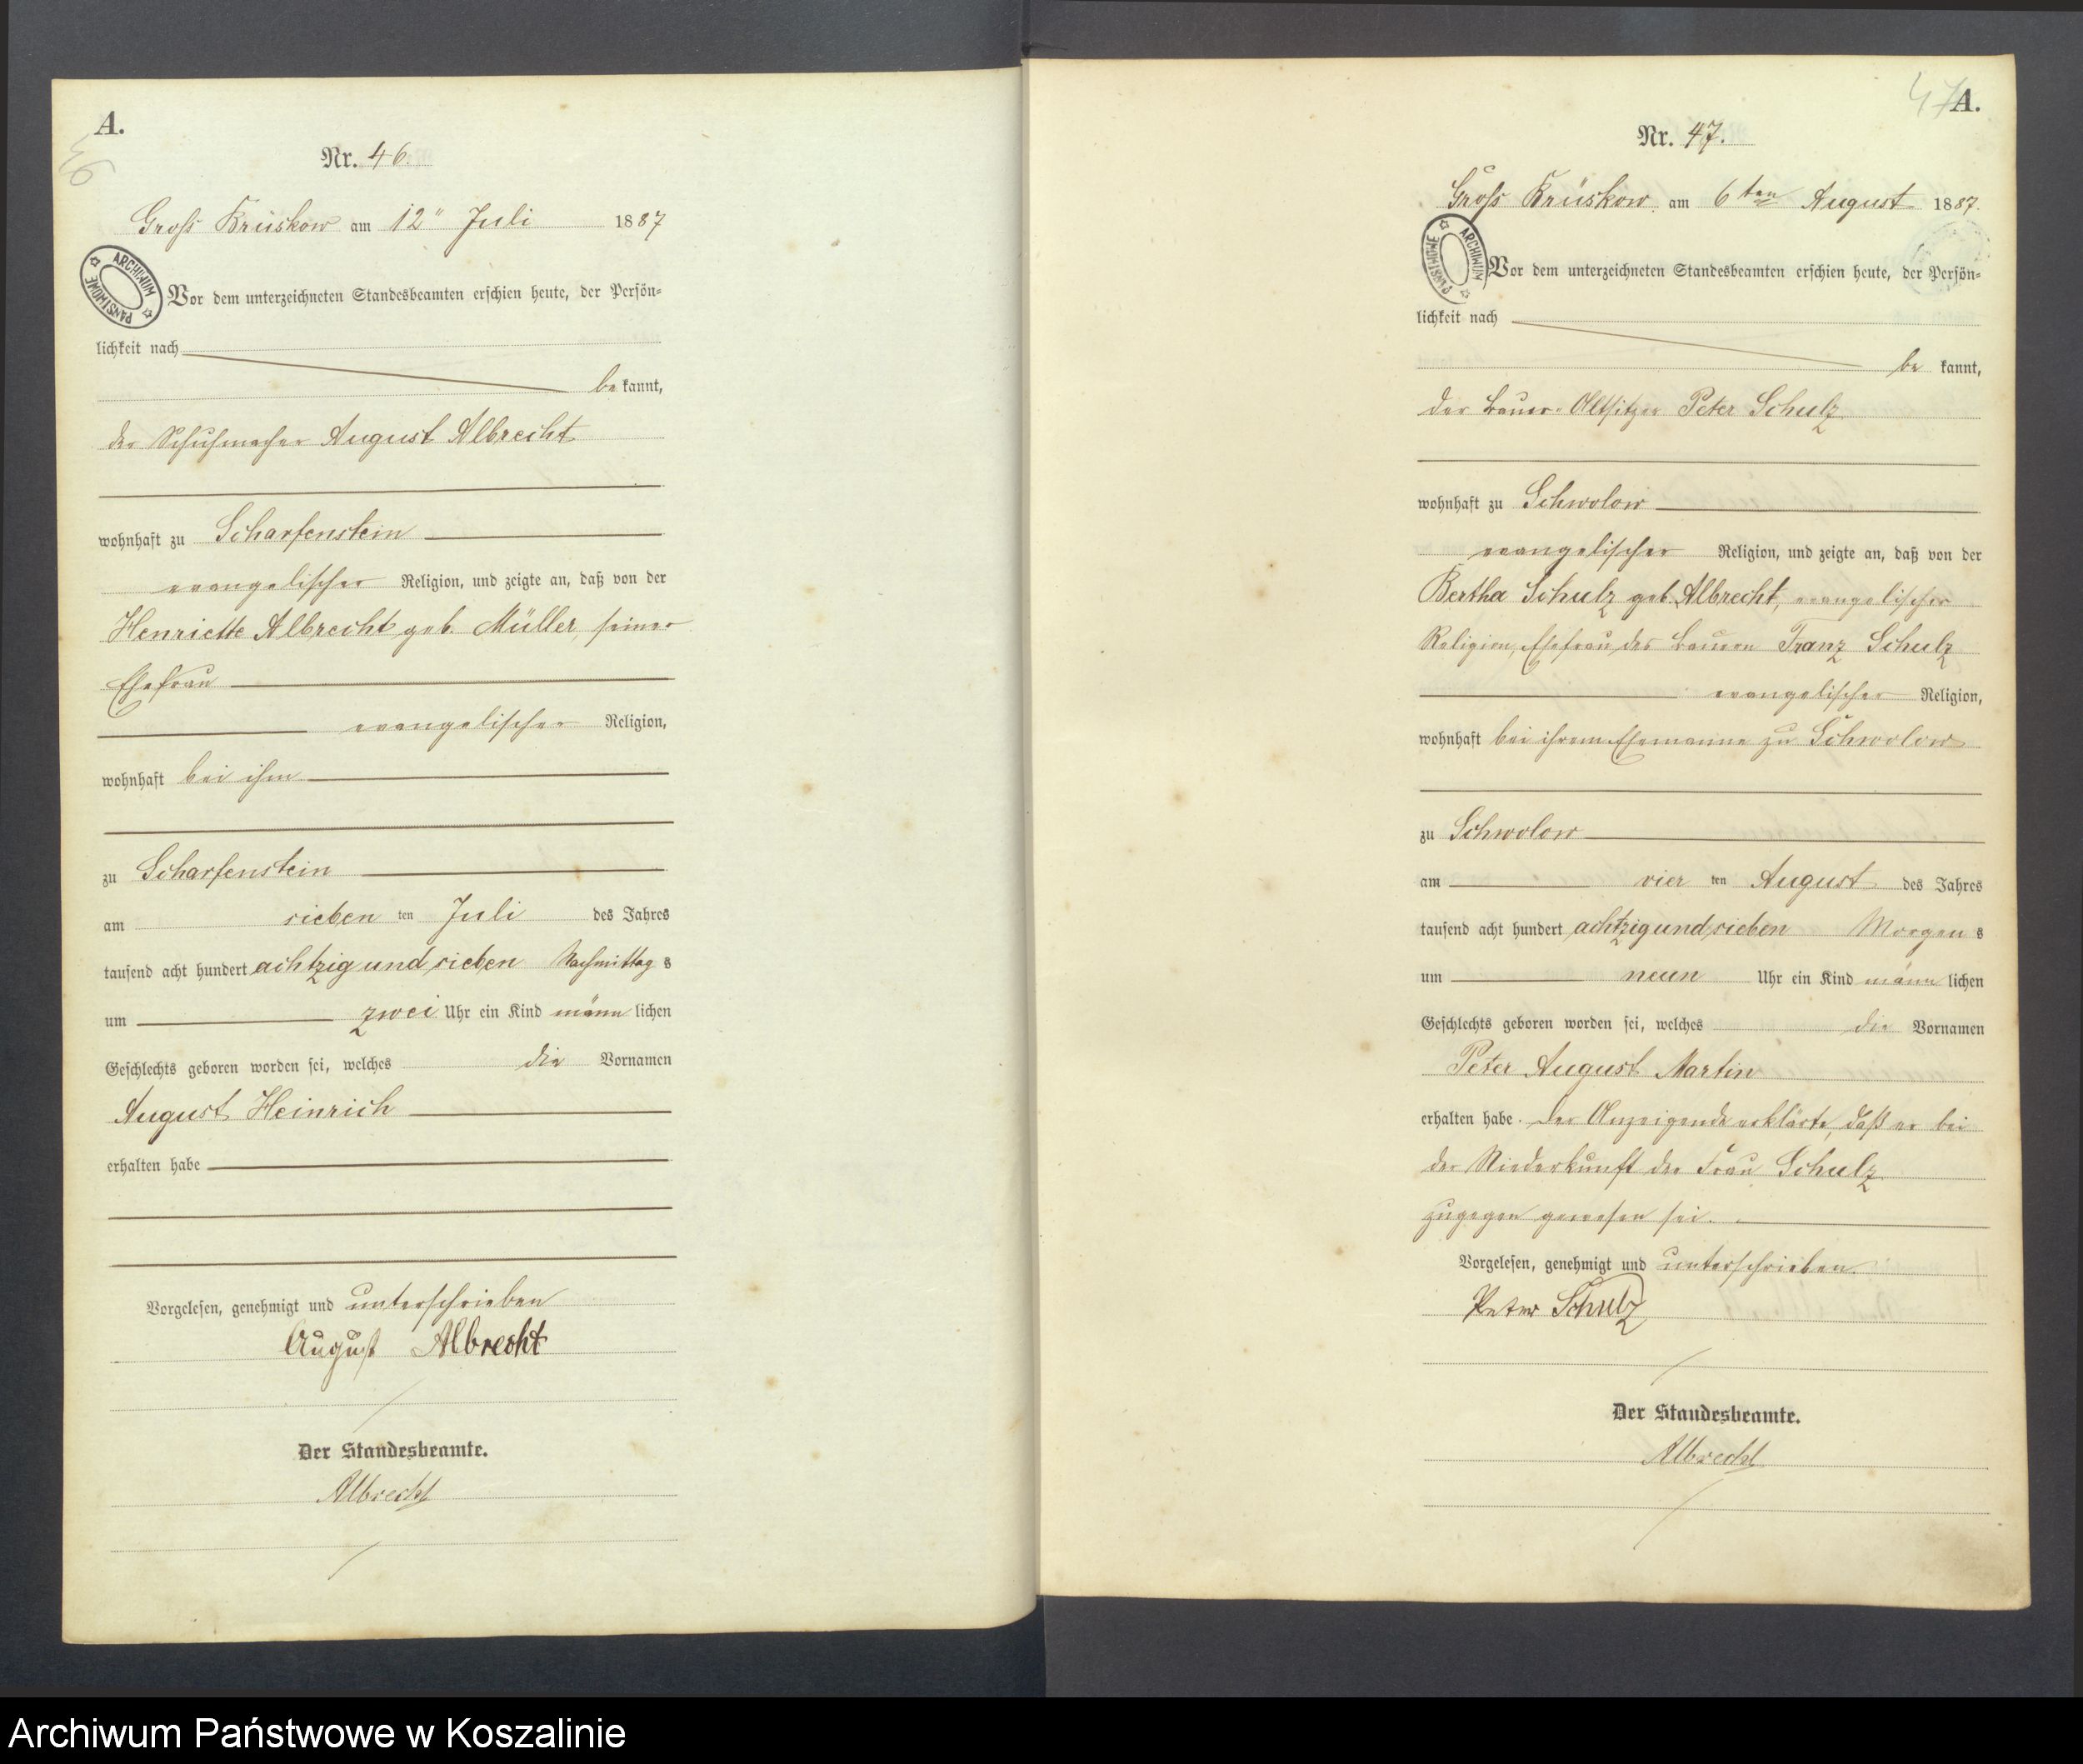 A.
46
Nr. 46.
Groß Brüskow am 12" Juli 1887
ARCHIWUM PAŃSTWOWE
Vor dem unterzeichneten Standesbeamten erschien heute, der Persön-
lichkeit nach
be kannt,
der Schuhmacher August Albrecht
wohnhaft zu Scharfenstein
evangelischer Religion, und zeigte an, daß von der
Henriette Albrecht geb. Müller, seiner
Ehefrau
evangelischer Religion,
wohnhaft bei ihm
zu Scharfenstein
am sieben ten Juli des Jahres
tausend acht hundert achtzig und sieben Nachmittag s
um zwei Uhr ein Kind männ lichen
Geschlechts geboren worden sei, welches die Vornamen
August Heinrich
erhalten habe
Vorgelesen, genehmigt und unterschrieben
August Albrecht
Der Standesbeamte.
Albrecht
47
A.
Nr. 47.
Groß Brüskow. am 6ten August 1887.
ARCHIWUM PAŃSTWOWE
Vor dem unterzeichneten Standesbeamten erschien heute, der Persön-
lichkeit nach
be kannt,
der Bauer-Altsitzer Peter Schulz
wohnhaft zu Schwolow
evangelischer Religion, und zeigte an, daß von der
Bertha Schulz geb. Albrecht, evangelischer
Religion, Ehefrau des Bauern Franz Schulz
evangelischer Religion,
wohnhaft bei ihrem Ehemanne zu Schwolow
zu Schwolow
am vier ten August des Jahres
tausend acht hundert achtzig und sieben Morgen s
um neun Uhr ein Kind männ lichen
Geschlechts geboren worden sei, welches die Vornamen
Peter August Martin
erhalten habe. Der Anzeigende erklärte, daß er bei
der Niederkunft der Frau Schulz
zugegen gewesen sei.
Vorgelesen, genehmigt und unterschrieben.
Peter Schulz
Der Standesbeamte.
Albrecht
Archiwum Państwowe w Koszalinie